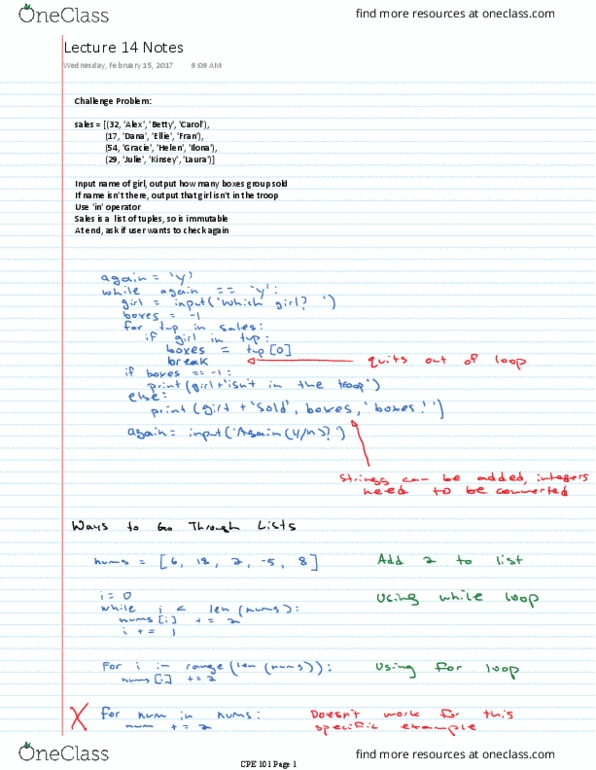 OneClass
find more resources at oneclass.com
Lecture 14 Notes
Wednesday, February 15, 2017 9:09 AM
Challenge Problem:
sales = [(32, 'Alex', 'Betty', 'Carol'),
(17, 'Dana', 'Ellie', 'Fran'),
(54, 'Gracie', 'Helen', 'Ilona'),
(29, 'Julie', 'Kinsey', 'Laura')]
Input name of girl, output how many boxes group sold
If name isn't there, output that girl isn't in the troop
Use 'in' operator
Sales is a list of tuples, so is immutable
At end, ask if user wants to check again
again = 'y'
while again == 'y':
girl = input('Which girl? ')
boxes = -1
for tup in sales:
if girl in tup:
boxes = tup[0]
break quits out of loop
if boxes == -1:
print(girl+'isn't in the troop')
else:
print(girl + 'sold', boxes, 'boxes!')
again = input('Again (y/n)? ')
strings can be added, integers
need to be converted
Ways to Go Through Lists
nums = [6, 18, 2, -5, 8] Add 2 to list
i = 0 Using while loop
while i < len(nums):
nums[i] += 2
i += 1
For i in range(len(nums)): Using for loop
nums[i] += 2
X for num in nums: Doesn't work for this
num += 2 specific example
OneClass
find more resources at oneclass.com
CPE 101 Page 1